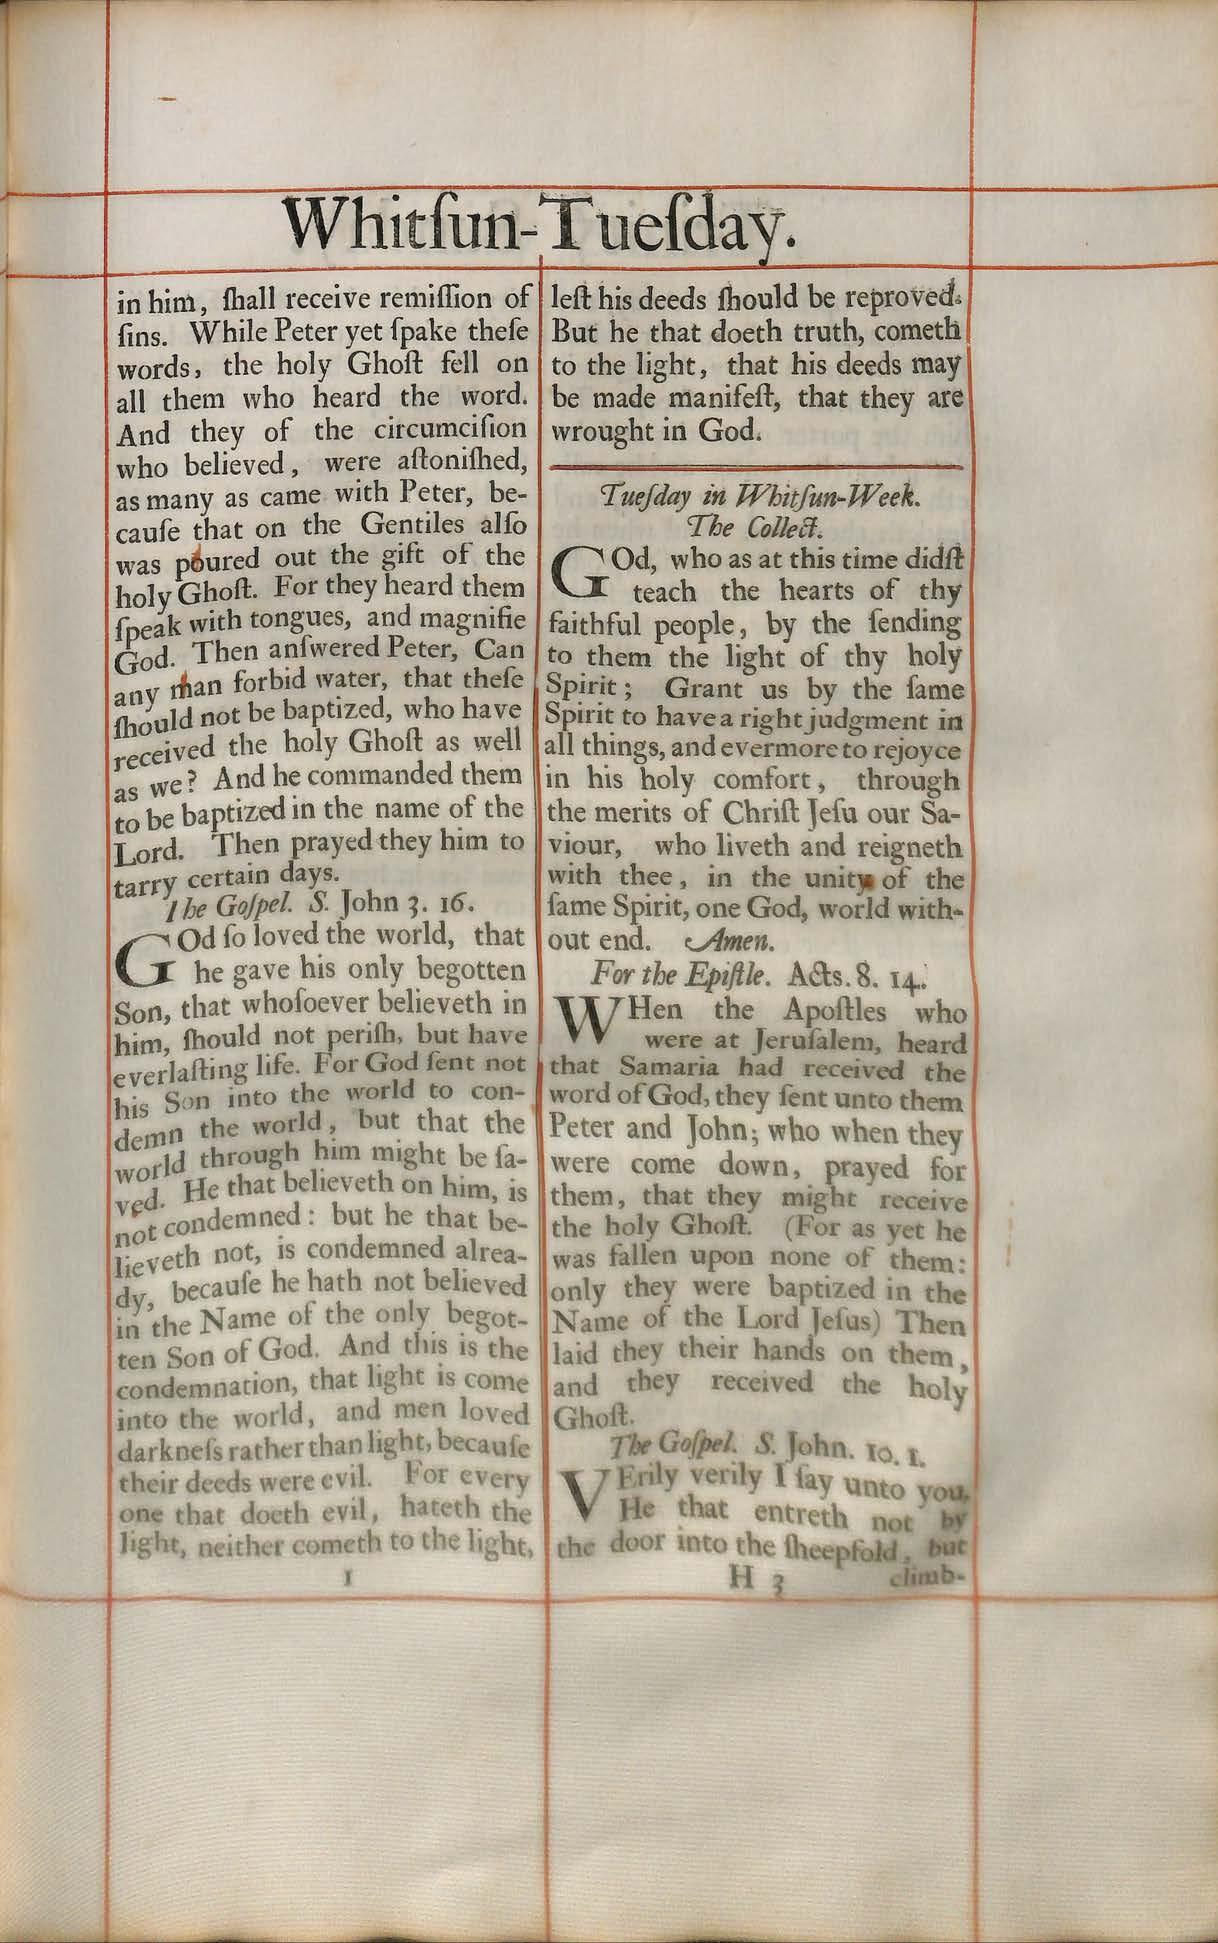 Whitſun-Tueſday.
in him, ſhall receive remiſſion of
ſins. While Peter yet ſpake theſe
words, the holy Ghoſt fell on
all them who heard the word.
And they of the circumciſion
who believed, were aſtoniſhed,
as many as came with Peter, be-
cauſe that on the Gentiles alſo
was poured out the gift of the
holy Ghoſt. For they heard them
ſpeak with tongues, and magnifie
God. Then anſwered Peter, Can
any man forbid water, that theſe
ſhould not be baptized, who have
received the holy Ghoſt as well
as we? And he commanded them
to be baptized in the name of the
Lord. Then prayed they him to
tarry certain days.
The Goſpel. S. John 3. 16.
GOd ſo loved the world, that
he gave his only begotten
Son, that whoſoever believeth in
him, ſhould not periſh, but have
everlaſting life. For God ſent not
his Son into the world to con-
demn the world, but that the
world through him might be ſa-
ved. He that believeth on him, is
not condemned: but he that be-
lieveth not, is condemned alrea-
dy, becauſe he hath not believed
in the Name of the only begot-
ten Son of God. And this is the
condemnation, that light is come
into the world, and men loved
darkneſs rather than light, becauſe
their deeds were evil. For every
one that doeth evil, hateth the
light, neither cometh to the light,
1
leſt his deeds ſhould be reproved.
But he that doeth truth, cometh
to the light, that his deeds may
be made manifeſt, that they are
wrought in God.
Tueſday in Whitſun-Week.
The Collect.
GOd, who as at this time didſt
teach the hearts of thy
faithful people, by the ſending
to them the light of thy holy
Spirit; Grant us by the ſame
Spirit to have a right judgment in
all things, and evermore to rejoyce
in his holy comfort, through
the merits of Chriſt Jeſu our Sa-
viour, who liveth and reigneth
with thee, in the unity of the
ſame Spirit, one God, world with-
out end. Amen.
For the Epiſtle. Acts. 8. 14.
WHen the Apoſtles who
were at Jeruſalem, heard
that Samaria had received the
word of God, they ſent unto them
Peter and John; who when they
were come down, prayed for
them, that they might receive
the holy Ghoſt. (For as yet he
was fallen upon none of them:
only they were baptized in the
Name of the Lord Jeſus) Then
laid they their hands on them,
and they received the holy
Ghoſt.
The Goſpel. S. John. 10. 1.
VErily verily I ſay unto you,
He that entreth not by
the door into the ſheepfold, but
H 3 climb-